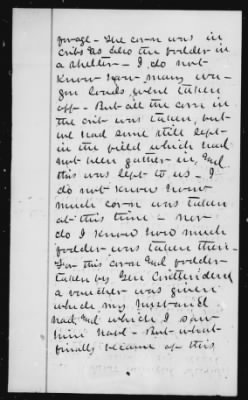 forage - The corn was in
cribs as also the fodder in
a shelter - I do not
know how many wa-
gon loads were taken
off - But all the corn in
the crib was taken, but
we had some still left
in the field which had
not been gather in, and
this was left to us - I
do not know how
much corn was taken
at this time - nor
do I know how much
fodder was taken then -
For this corn and fodder
taken by Gen Crittenden
a voucher was given
which my husband
had, and which I saw
him have - But what
finally became of this